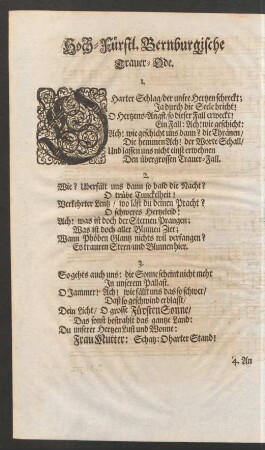 Hoch-Fürstl. Bernburgische
Trauer-Ode.
1.
O Harter Schlag/der unsre Hertzen schreckt;
Ja durch die Seele bricht;
O Hertzens-Angst/so dieser Fall erweckt;
Ein Fall: Ach: wie geschicht:
Ach: wie geschicht uns dann? die Thränen/
Die hemmen Ach; der Worte Schall/
Und lassen uns nicht einst erwehnen
Den übergrossen Trauer-Fall.
2.
Wie? Uberfält uns dann so bald die Nacht?
O trübe Tunckelheit:
Verkehrter Lentz/ wo läst du deinen Pracht?
O schweres Hertzeleid:
Ach; was ist doch der Sternen Prangen:
Was ist doch aller Blumen Zier:
Wann Phöben Glantz nichts wil verfangen?
Es trauren Stern und Blumen hier.
3.
So gehts auch uns: die Sonne scheint nicht mehr
In unserem Pallast.
O Jammer: Ach; wie fällt uns das so schwer/
Daß so geschwind erblast/
Dein Licht/ O grosse Fürsten Sonne/
Das sonst bestrahlt das gantze Land:
Du unserer Hertzen Lust und Wonne:
Frau Mutter: Schatz: O harter Stand:
4. An